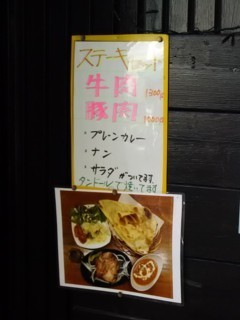 ステーキセット
牛肉 1300円
豚肉 1000円
・プレーンカレー
・ナン
・サラダ がついてます。
タンドールで焼いてます